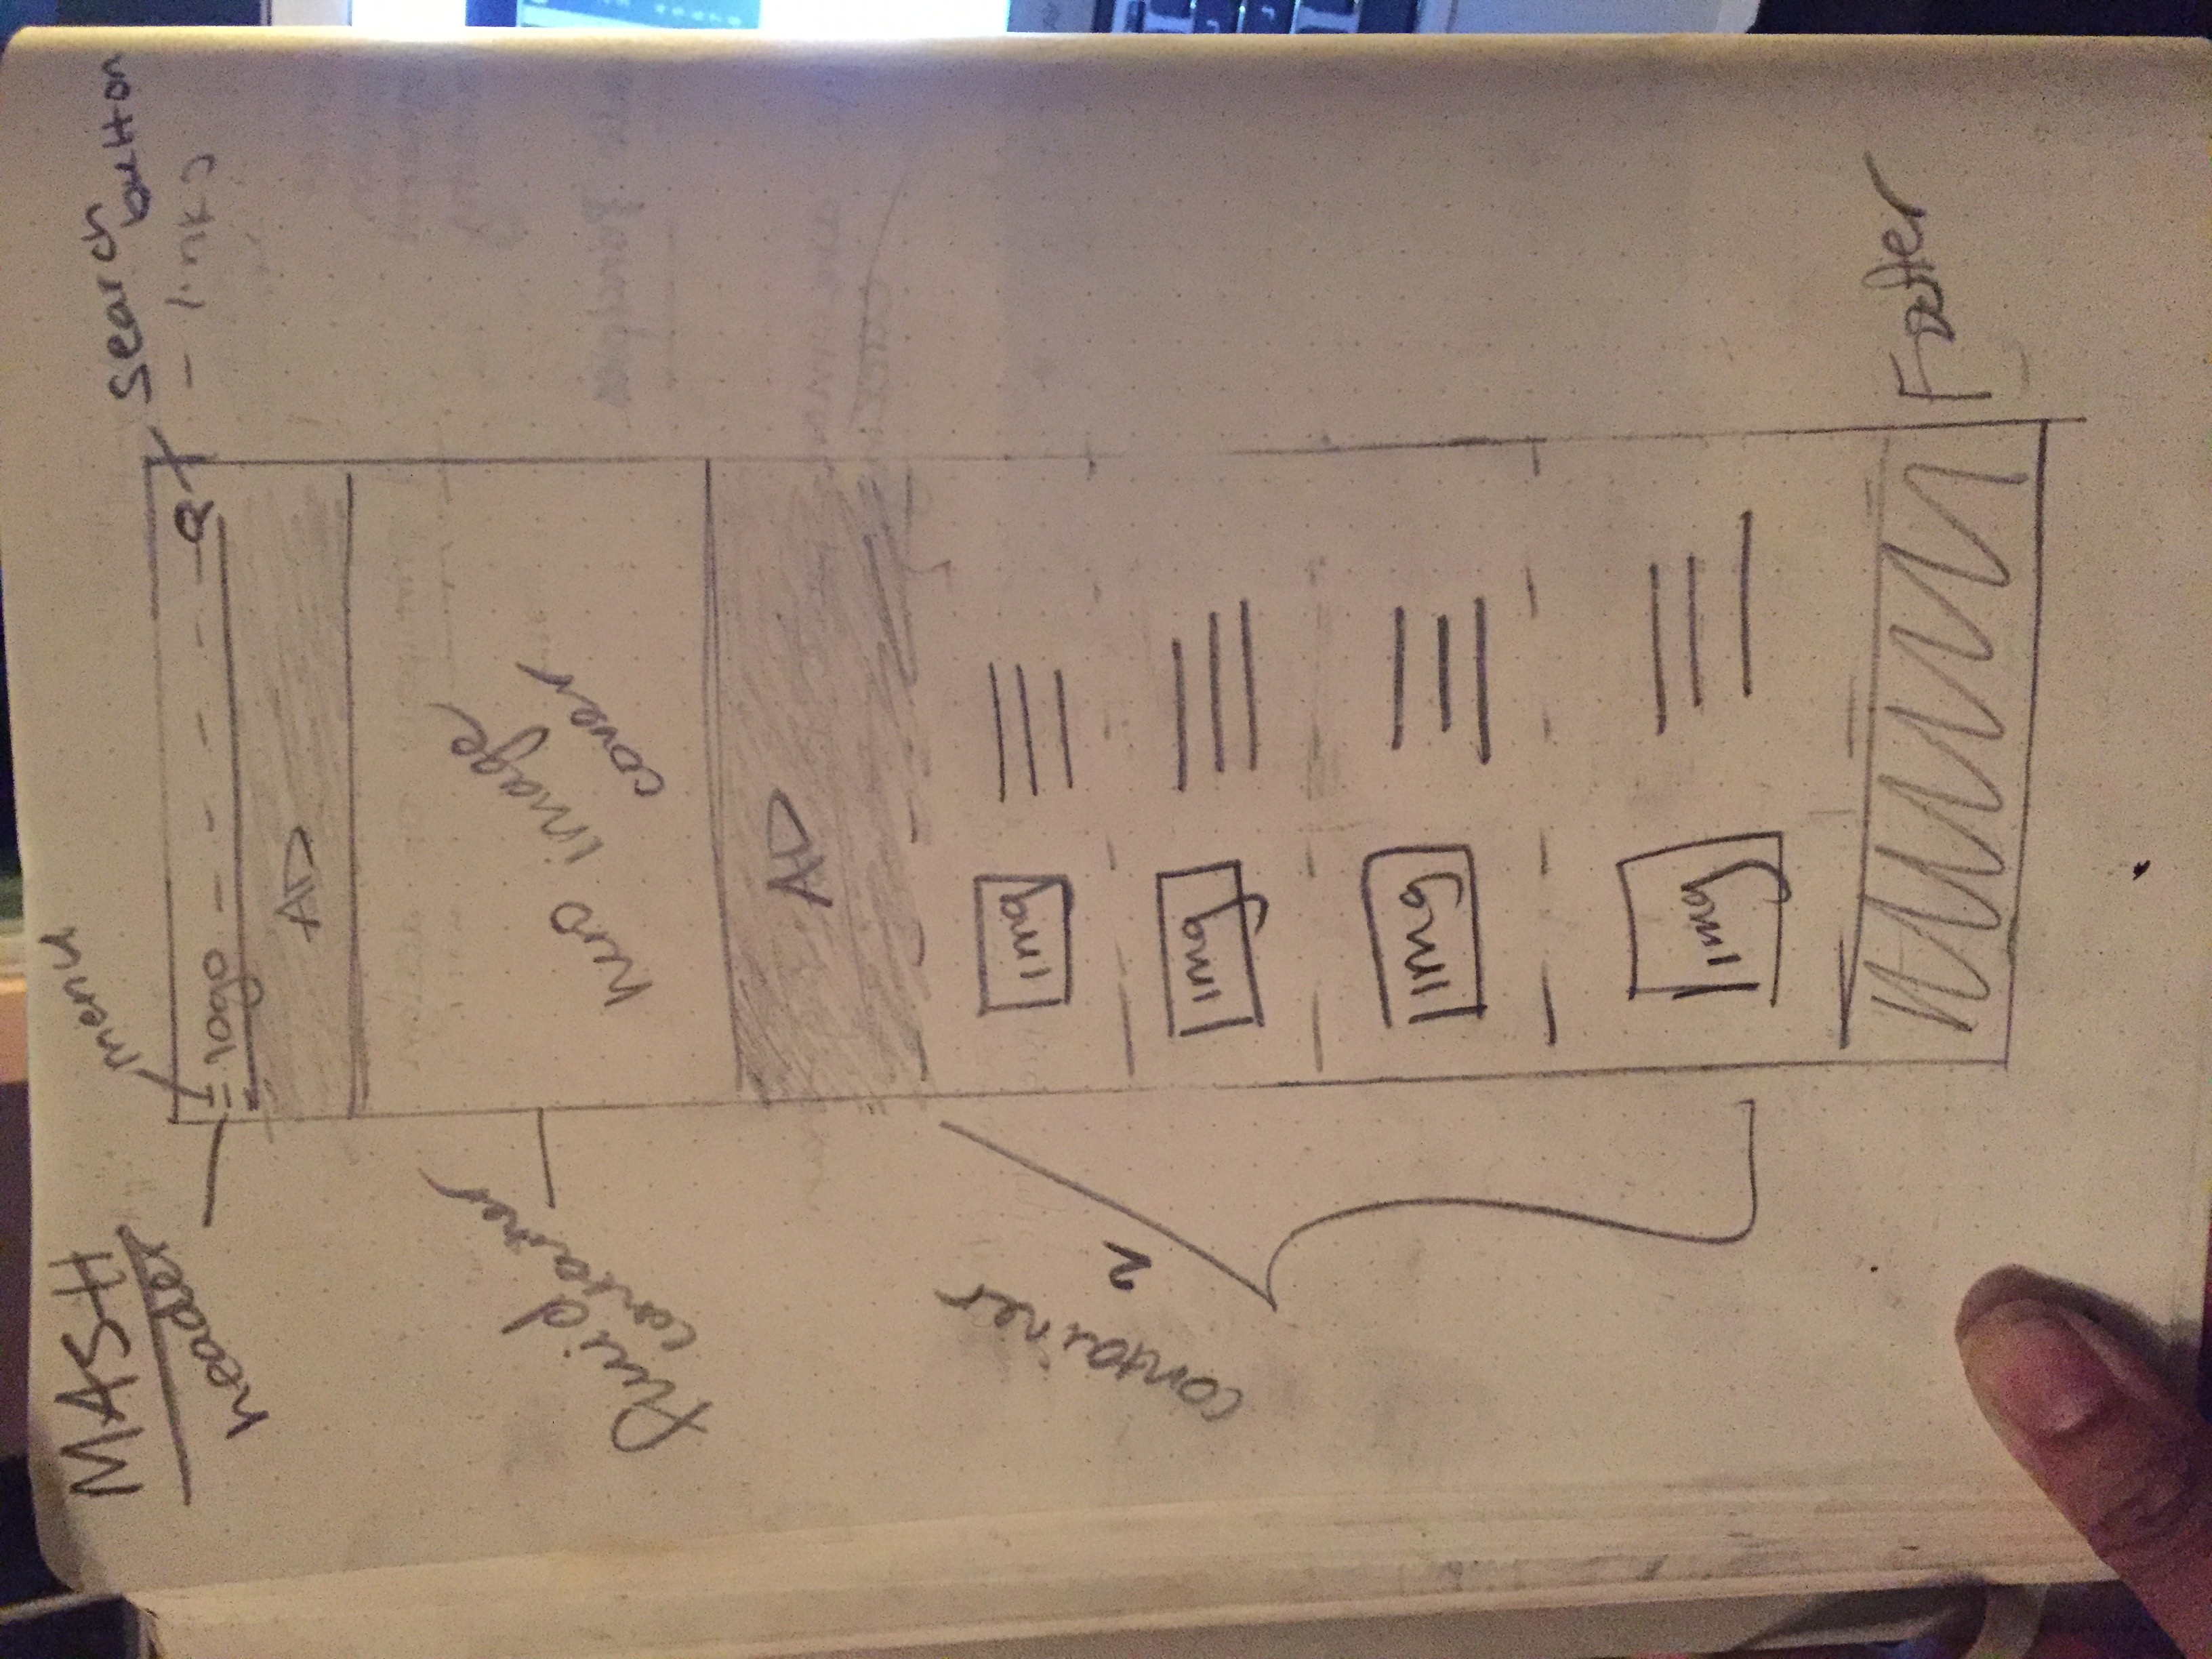 MASH
header
menu
search
button
- links
logo
AD
fluid
container
hero image
cover
AD
container
2
img
img
img
img
Footer